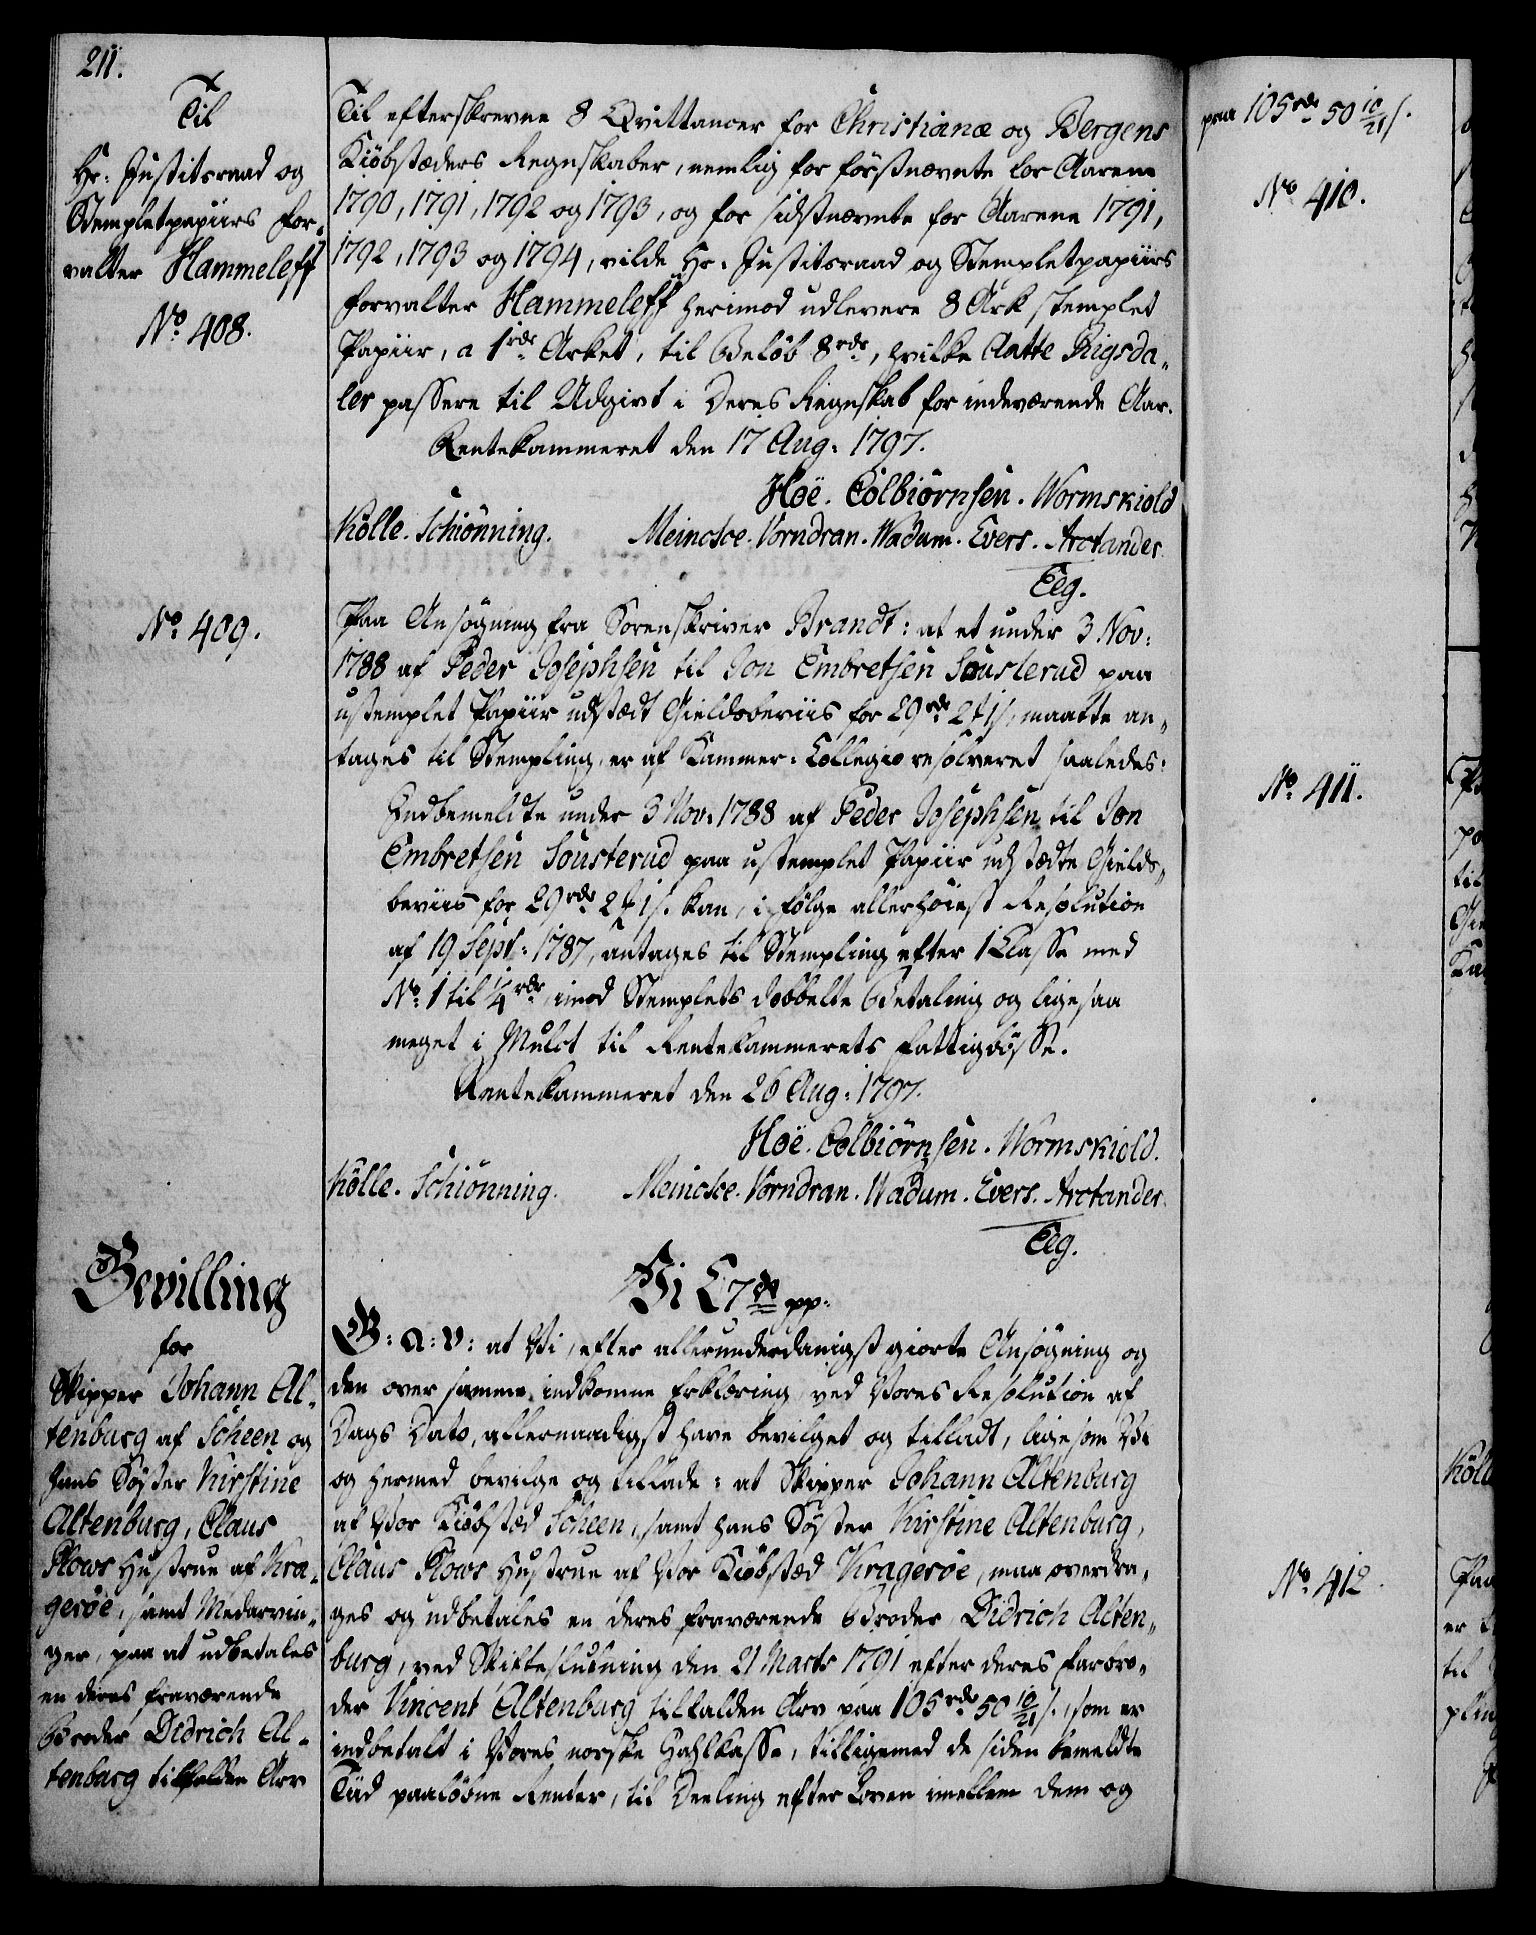 211.
Til
Hr: Justitsraad og
Stempletpapiirs For-
valter Hammeleff
No. 408.
Til efterskrevne 8 Qvittancer for Christianæ og Bergens
Kiöbstæders Regnskaber, nemlig for förstnævnte for Aarene
1790, 1791, 1792 og 1793, og for sidstnævnte for Aarene 1791,
1792, 1793 og 1794, vilde Hr. Justitsraad og Stempletpapiirs
Forvalter Hammeleff herimod udlevere 8 Ark stemplet
Papiir, a 1 rdr Arket, til Beløb 8 rdr, hvilke Aatte Rigsda-
ler passere til Udgivt i Deres Regnskab for indeværende Aar.
Rentekammeret den 17 Aug: 1797.
Hoë. Colbiörnsen. Wormskiold
Kölle. Schiönning. Meincke. Vorndran. Wadum. Evers. Arctander.
Eeg.
No. 409.
Paa Ansögning fra Sorenskriver Brandt: at et under 3 Nov:
1788 af Peder Josephsen til Jon Embretsen Sousterud paa
ustemplet Papiir udstædt Gieldsbeviis for 29 rdr 2 ʄ 1 s, maatte an-
tages til Stempling, er af Kammer-Collegio resolveret saaledes:
Indbemeldte under 3 Nov: 1788 af Peder Josephsen til Jon
Embretsen Sousterud paa ustemplet Papiir udstædte Gields-
beviis for 29 rdr 2 ʄ 1 s. kan, i fölge allerhöiest Resolution
af 19 Sept: 1787, antages til Stempling efter 1 Classe med
No. 1 til 1/4 rdr, imod Stemplets dobbelte Betaling og ligesaa
meget i Mulct til Rentekammerets Fattigbösse.
Rentekammeret den 26 Aug: 1797.
Hoë. Colbiörnsen. Wormskiold.
Kölle. Schiönning. Meincke. Vorndran. Wadum. Evers. Arctander.
Eeg.
Bevilling
for
Skipper Johann Al-
tenburg af Scheen og
hans Söster Kirstine
Altenburg, Claus
Plows Hustrue af Kra-
geröe, samt Medarvin-
ger, paa at udbetales
en deres fraværende
Broder Didrich Al-
tenburg tilfalden Arv
Vi C 7de pp:
G: A: V: at Vi, efter allerunderdanigst giorte Ansögning og
den over samme indkomne Erklæring, ved Vores Resolution af
Dags Dato, allernaadigst have bevilget og tilladt, ligesom Vi
og hermed bevilge og tillade: at Skipper Johann Altenburg
af Vor Kiöbstæd Scheen, samt hans Söster Kirstine Altenburg,
Claus Plows Hustrue af Vor Kiöbstæd Krageröe, maa overdra-
ges og udbetales en deres fraværende Broder Didrich Alten-
burg, ved Skifteslutning den 21 Marts 1791 efter deres Farbro-
der Vincent Altenburg tilfalden Arv paa 105 rdr 50 10/21 s., som er
indbetalt i Vores norske Zahlkasse, tilligemed de siden bemeldte
Tiid paalöbne Renter, til Deeling efter Loven imellem dem og
paa 105 rdr 50 10/21 s.
No. 410.
No. 411.
No. 412.